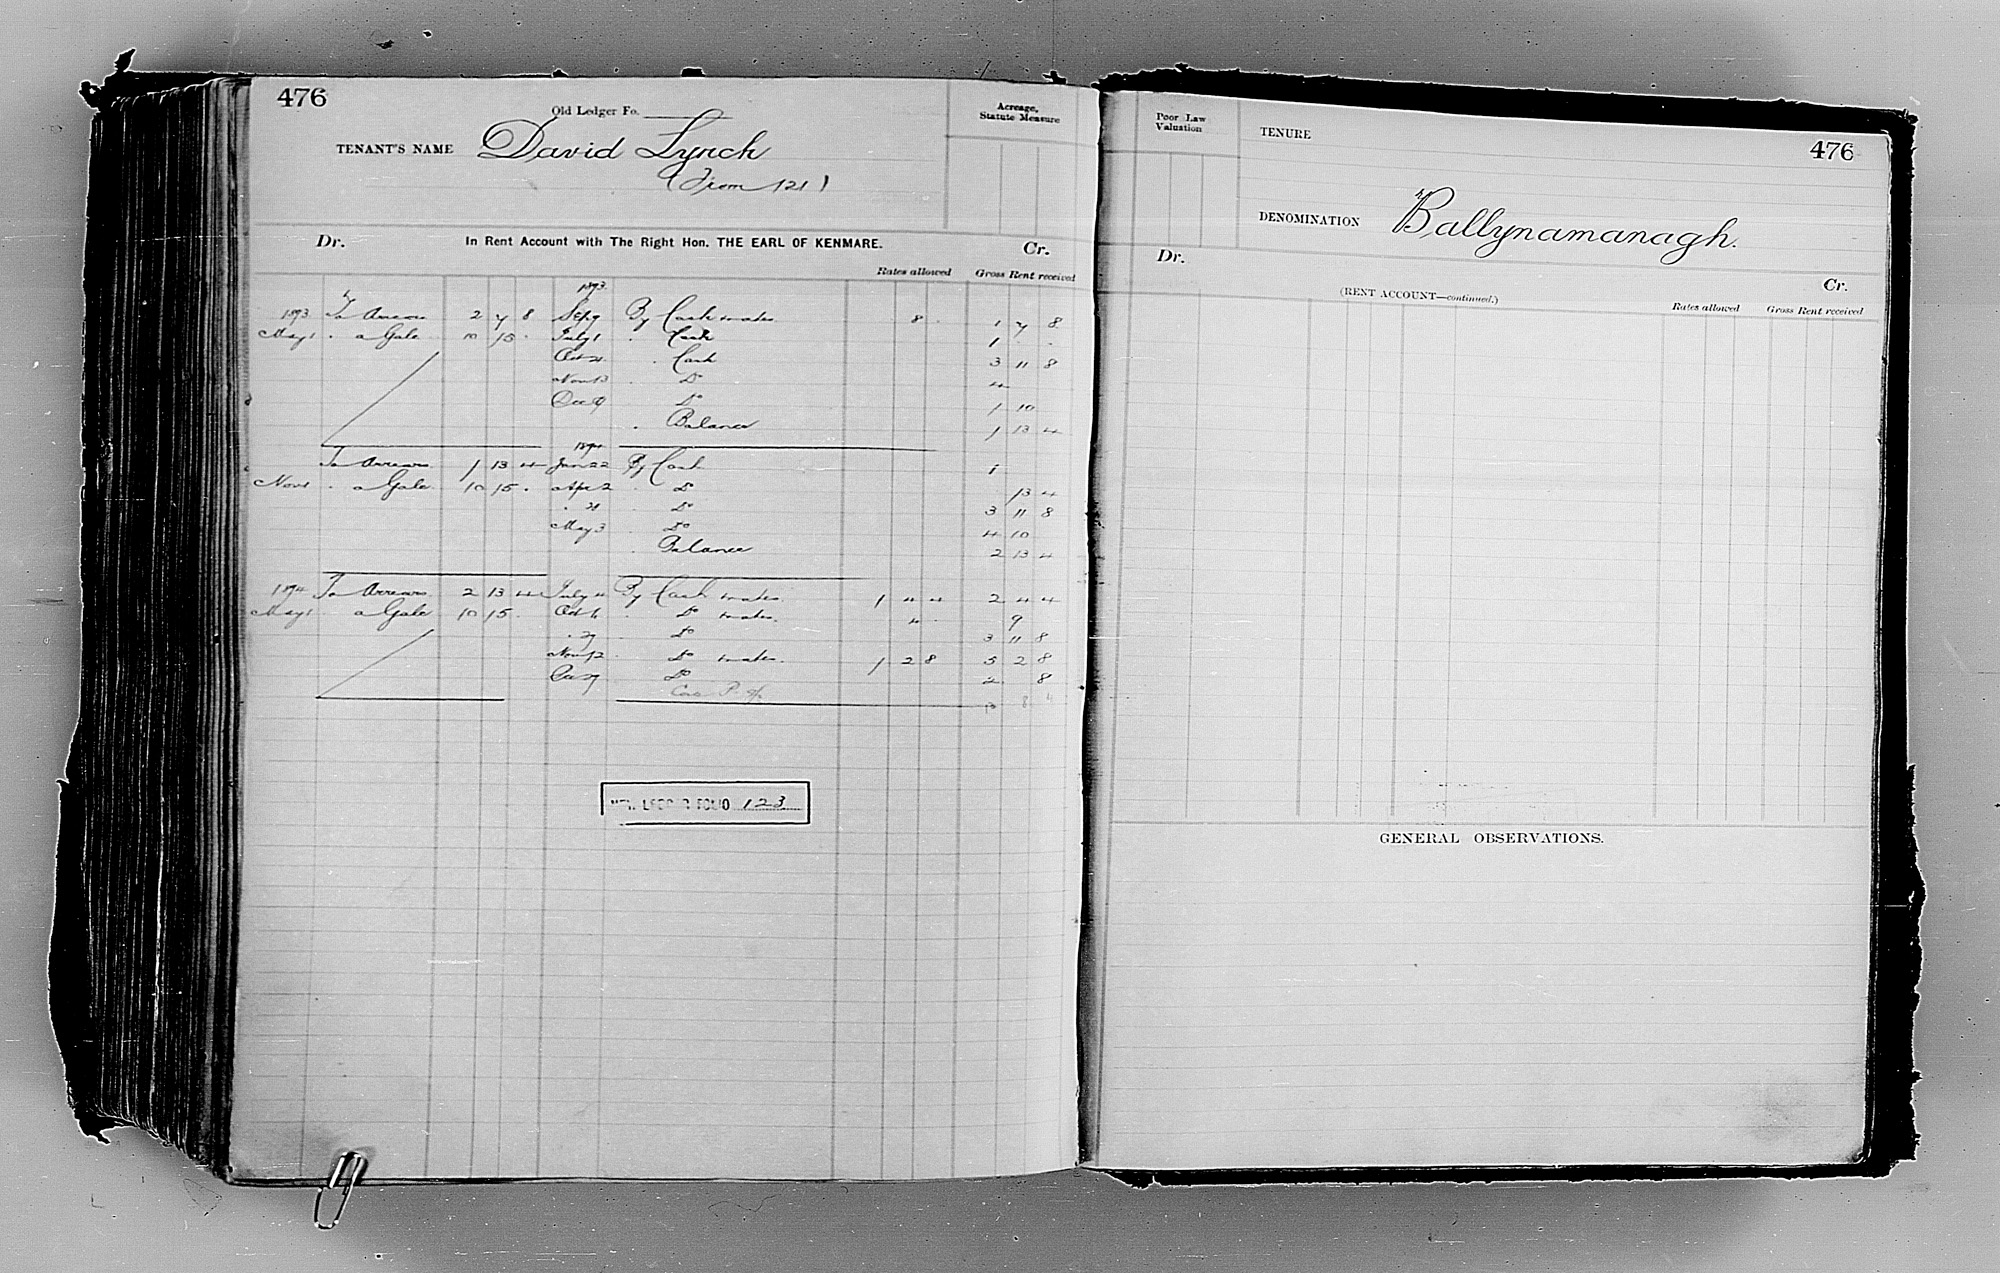 476
Old Ledger Fo.
TENANT'S NAME David Lynch
(From 121)
Acreage, Statute Measure
Dr. In Rent Account with The Right Hon. THE EARL OF KENMARE. Cr.
Rates allowed Gross Rent received
1893
1893 To Arrears 2 7 8 Sep 9 By Cash & rates 8 . 1 7 8
May 1 . a Gale 10 15 . July 1 . Cash 1 . .
Oct 21 . Cash 3 11 8
Nov 13 . Do 4
Dec 9 Do 1 10
. Balance 1 13 4
1894
To Arrears 1 13 4 Jan 22 By Cash 1
Nov 1 . a Gale 10 15 . Apr 2 . Do 13 4
. 21 . Do 3 11 8
May 3 . Do 4 10
. Balance 2 13 4
1894 To Arrears 2 13 4 July 4 By Cash & rates 1 4 4 2 4 4
May 1 a Gale 10 15 . Oct 6 . Do & rates. 4 . 9
. 27 . Do 3 11 8
Nov 12 . Do & rates. 1 2 8 5 2 8
Dec 27 Do 2 8
13 8 4
LEDGER FOLIO 123
Poor Law Valuation
TENURE
476
DENOMINATION Ballynamanagh.
Dr. Cr.
(RENT ACCOUNT—continued.)
Rates allowed Gross Rent received
GENERAL OBSERVATIONS.